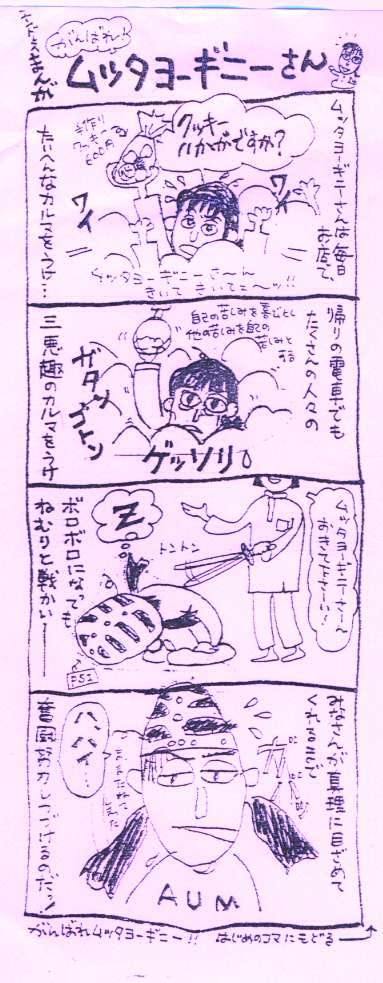 がんばれ!
ムッタヨーギニーさん
ムッタヨーギニーさんは毎日
お店で、
クッキー
いかがですか?
手作り
クッキー
600円
ワイ
ワイ
ムッタヨーギニーさ〜ん
きいて きいてェ〜ッ!!
たいへんなカルマをうけ…
帰りの電車でも
たくさんの人々の
自己の苦しみを喜びとし
他の苦しみを自己の
苦しみとする
ガタン
ゴトン
ゲッソリ
三悪趣のカルマをうけ
ムッタヨーギニーさ〜ん
おきて下さーい!
トントン
Z
ボロボロになっても
ねむりと戦かい――
PSI
みなさんが真理に目ざめて
くれるまで
ハ、ハイ…
AUM
奮闘努力しつづけるのだっ!
がんばれムッタヨーギニー!! はじめのコマにもどる